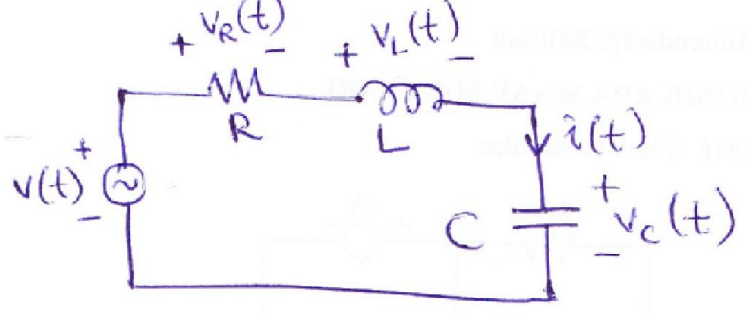 + v_R(t) -
+ v_L(t) -
R
L
i(t)
v(t) + -
C
+ v_c(t) -